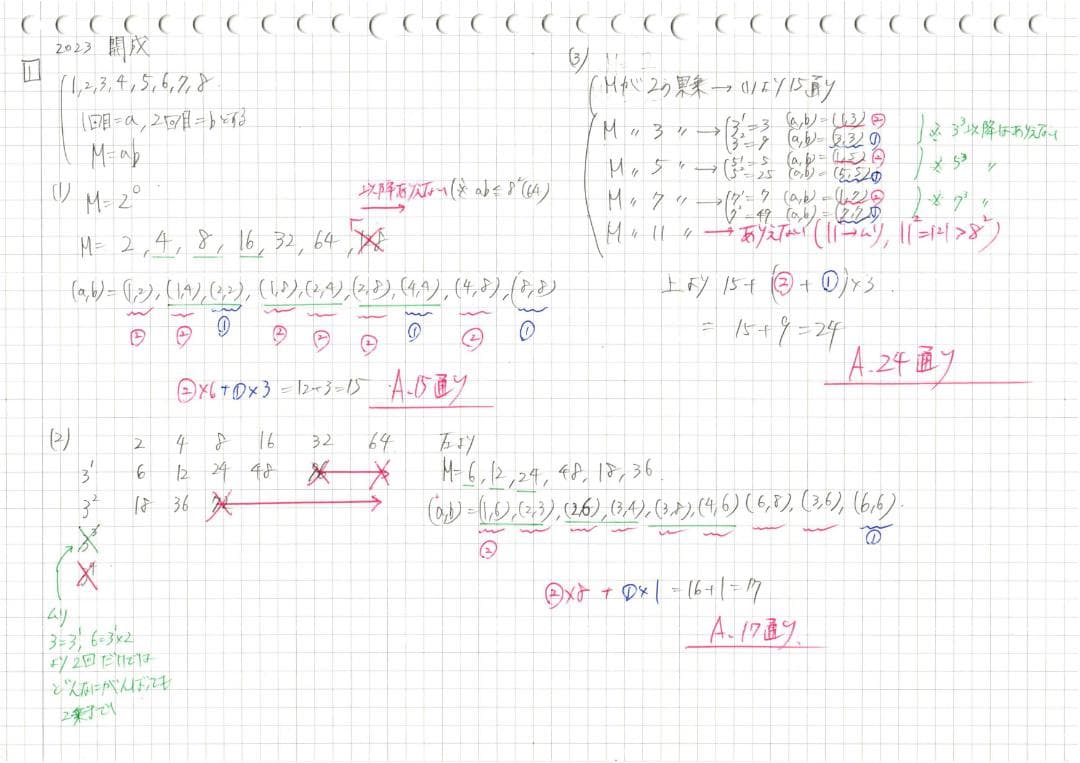 2023 開成
1
1,2,3,4,5,6,7,8
1回目=a, 2回目=bとする
M=ab
(1) M=2⁰
以降ありえない(※ ab≦8²(64)
M= 2, 4, 8, 16, 32, 64, 128
(a,b)=(1,2), (1,4), (2,2), (1,8), (2,4), (2,8), (4,4), (4,8), (8,8)
② ② ① ② ② ② ① ② ①
②×6+①×3=12+3=15 A.15通り
(2) 2 4 8 16 32 64
3¹ 6 12 24 48 96
3² 18 36 72
3³
3⁴
ムリ
3=3¹, 6=3¹×2
より2回だけでは
どんなにがんばっても
2乗まで
左より
M=6, 12, 24, 48, 18, 36
(a,b)=(1,6), (2,3), (2,6), (3,4), (3,8), (4,6) (6,8), (3,6), (6,6)
② ①
②×8 + ①×1 =16+1=17
A.17通り
(3)
Mが2の累乗→(1)より15通り
M 〃 3 〃 → 3¹=3 (a,b)=(1,3)②
3²=9 (a,b)=(3,3)① ※ 3³以降はありえない
M 〃 5 〃 → 5¹=5 (a,b)=(1,5)②
5²=25 (a,b)=(5,5)① ※ 5³ 〃
M 〃 7 〃 → 7¹=7 (a,b)=(1,7)②
7²=49 (a,b)=(7,7)① ※ 7³ 〃
M 〃 11 〃 → ありえない(11→ムリ, 11²=121>8²)
上より 15+(②+①)×3
=15+9=24
A.24通り